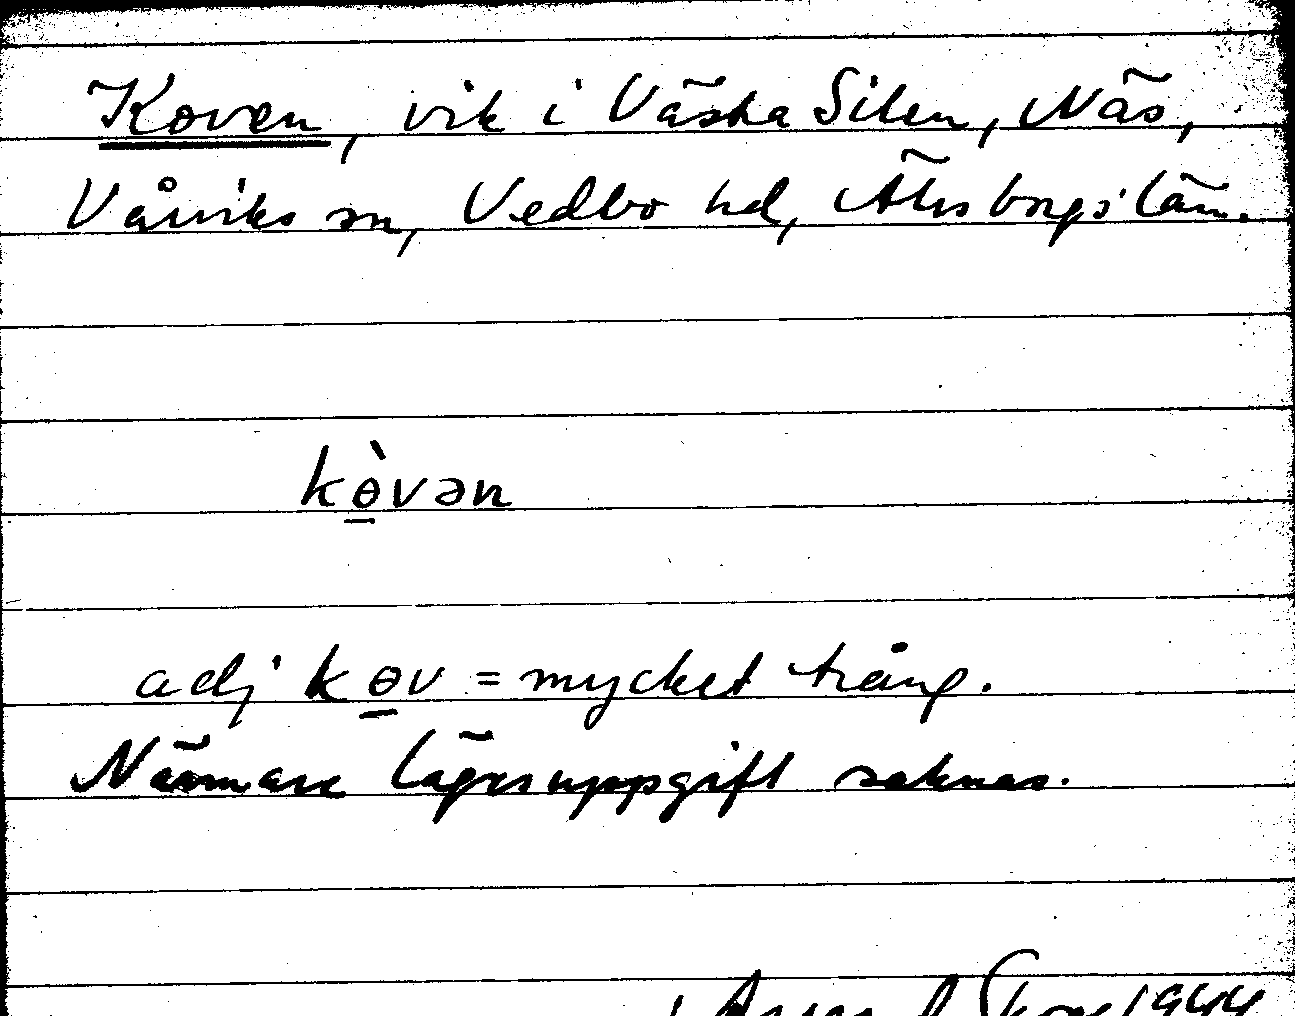 Koven, vik i Västra Silen, Näs,
Vårviks sn, Vedbo hd, Älvsborgs län.
kѳ̀vən
adj kѳv = mycket trång.
Närmare lägesuppgift saknas.
1944